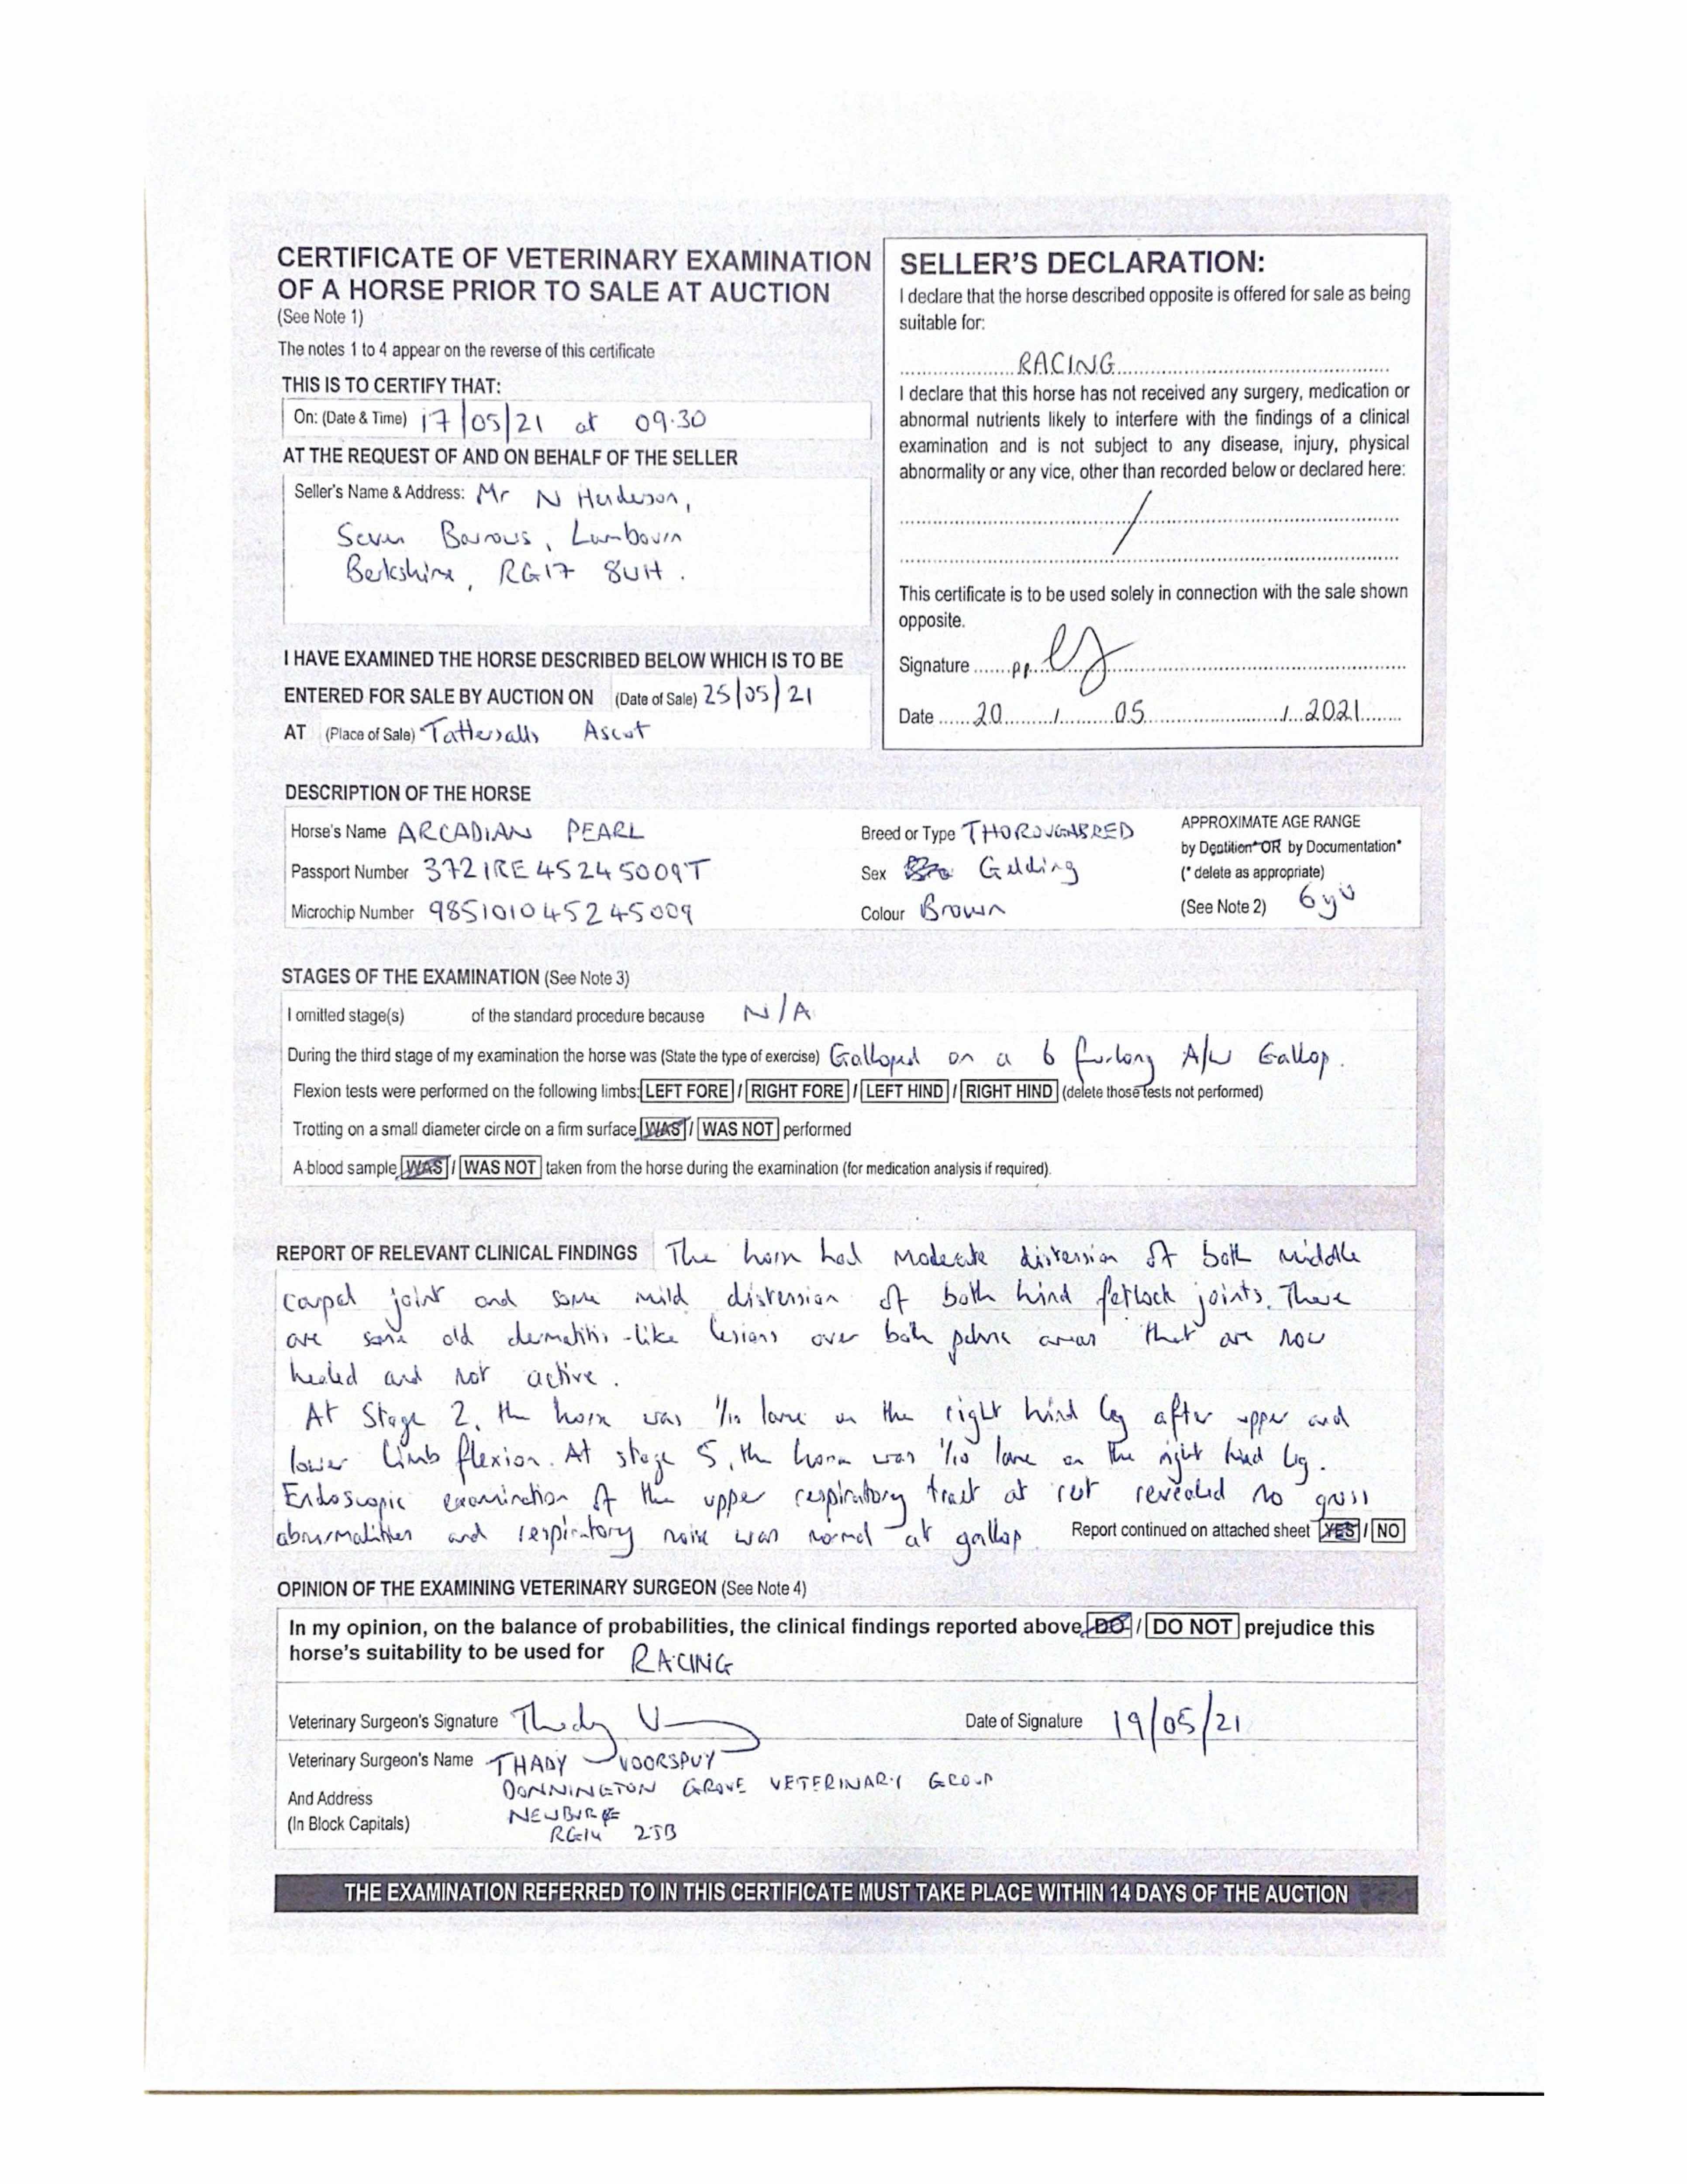 CERTIFICATE OF VETERINARY EXAMINATION
OF A HORSE PRIOR TO SALE AT AUCTION
(See Note 1)
The notes 1 to 4 appear on the reverse of this certificate
THIS IS TO CERTIFY THAT:
On: (Date & Time) 17/05/21 at 09.30
AT THE REQUEST OF AND ON BEHALF OF THE SELLER
Seller's Name & Address: Mr N Henderson,
Seven Barrows, Lambourn
Berkshire, RG17 8UH.
I HAVE EXAMINED THE HORSE DESCRIBED BELOW WHICH IS TO BE
ENTERED FOR SALE BY AUCTION ON (Date of Sale) 25/05/21
AT (Place of Sale) Tattersalls Ascot
SELLER'S DECLARATION:
I declare that the horse described opposite is offered for sale as being
suitable for:
RACING
I declare that this horse has not received any surgery, medication or
abnormal nutrients likely to interfere with the findings of a clinical
examination and is not subject to any disease, injury, physical
abnormality or any vice, other than recorded below or declared here:
/
This certificate is to be used solely in connection with the sale shown
opposite.
Signature pp.
Date 20 / 05 / 2021
DESCRIPTION OF THE HORSE
Horse's Name ARCADIAN PEARL
Breed or Type THOROUGHBRED
APPROXIMATE AGE RANGE
by Dentition* OR by Documentation*
Passport Number 372IRE45245009T
Sex Gelding
(* delete as appropriate)
Microchip Number 985101045245009
Colour Brown
(See Note 2) 6yo
STAGES OF THE EXAMINATION (See Note 3)
I omitted stage(s) of the standard procedure because N/A
During the third stage of my examination the horse was (State the type of exercise) Galloped on a 6 furlong A/W Gallop.
Flexion tests were performed on the following limbs: LEFT FORE / RIGHT FORE / LEFT HIND / RIGHT HIND (delete those tests not performed)
Trotting on a small diameter circle on a firm surface WAS / WAS NOT performed
A blood sample WAS / WAS NOT taken from the horse during the examination (for medication analysis if required).
REPORT OF RELEVANT CLINICAL FINDINGS The horse had moderate distension of both middle
carpal joint and some mild distension of both hind fetlock joints. There
are some old dermatitis-like lesions over both pelvic areas that are now
healed and not active.
At Stage 2, the horse was 1/10 lame on the right hind leg after upper and
lower limb flexion. At stage 5, the horse was 1/10 lame on the right hind leg.
Endoscopic examination of the upper respiratory tract at rest revealed no gross
abnormalities and respiratory noise was normal at gallop. Report continued on attached sheet YES / NO
OPINION OF THE EXAMINING VETERINARY SURGEON (See Note 4)
In my opinion, on the balance of probabilities, the clinical findings reported above DO / DO NOT prejudice this
horse's suitability to be used for RACING
Veterinary Surgeon's Signature Thady V
Date of Signature 19/05/21
Veterinary Surgeon's Name THADY VOORSPUY
And Address DONNINGTON GROVE VETERINARY GROUP
(In Block Capitals)
RG14 2JB
THE EXAMINATION REFERRED TO IN THIS CERTIFICATE MUST TAKE PLACE WITHIN 14 DAYS OF THE AUCTION